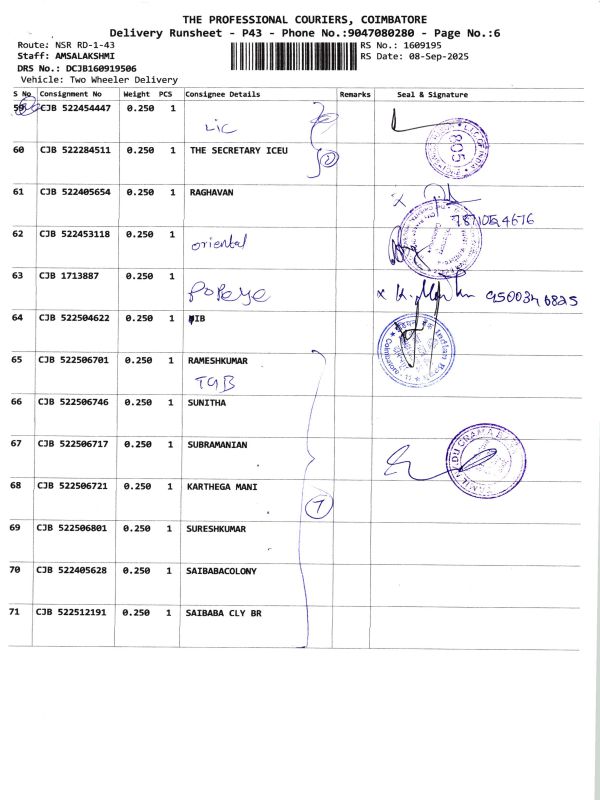 THE PROFESSIONAL COURIERS, COIMBATORE
Delivery Runsheet - P43 - Phone No.:9047080280 - Page No.:6
Route: NSR RD-1-43 RS No.: 1609195
Staff: AMSALAKSHMI RS Date: 08-Sep-2025
DRS No.: DCJB160919506
Vehicle: Two Wheeler Delivery
S No. Consignment No Weight PCS Consignee Details Remarks Seal & Signature
59 CJB 522454447 0.250 1
LIC
60 CJB 522284511 0.250 1 THE SECRETARY ICEU
805
61 CJB 522405654 0.250 1 RAGHAVAN
62 CJB 522453118 0.250 1
oriental
63 CJB 1713887 0.250 1
Popeye
64 CJB 522504622 0.250 1 IB
Indian Bank
65 CJB 522506701 0.250 1 RAMESHKUMAR
TGB
66 CJB 522506746 0.250 1 SUNITHA
67 CJB 522506717 0.250 1 SUBRAMANIAN
68 CJB 522506721 0.250 1 KARTHEGA MANI
7
69 CJB 522506801 0.250 1 SURESHKUMAR
70 CJB 522405628 0.250 1 SAIBABACOLONY
71 CJB 522512191 0.250 1 SAIBABA CLY BR